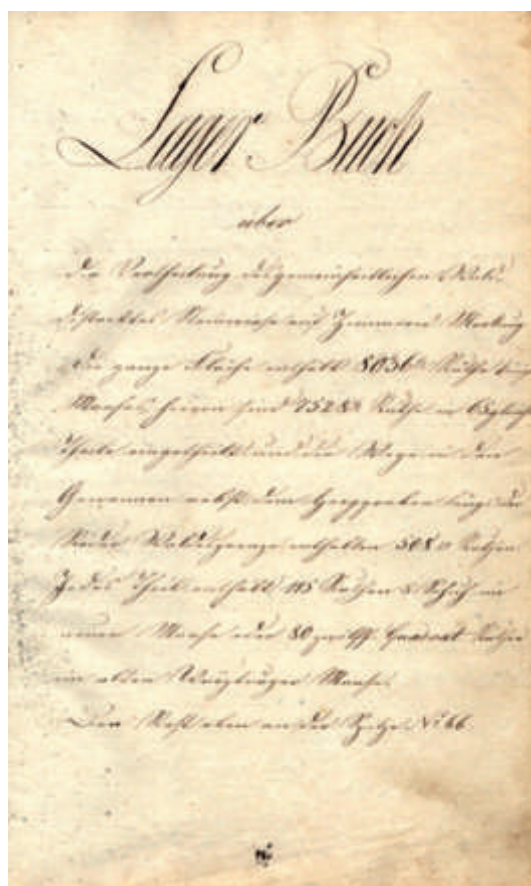 Lager Buch
über
die Vertheilung des gemeinheitlichen Wald
districktes auf Markung
die ganze Fläche enthält 8036 Ruthen
Maases hievon sind 7528 Ruthe in 65
Theile eingetheilt und die Wege in den
Gewannen nebst dem längs der
Waldgrenze enthalten 508 Ruthen
Jedes Theil enthält 115 Ruthen 8 Schuh im
neuen Maase oder 80 Quadrat Ruthen
im alten Würzburger Maase.
Der Rest oben an der Spitze N: 66